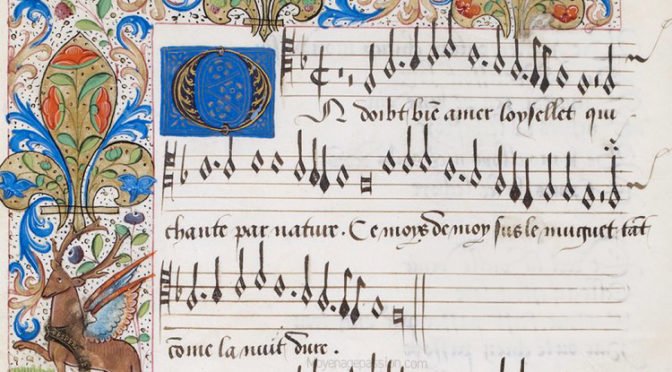 On doibt biē amer loysellet qui
chante par nature. Ce moys de moy sus le muguet tāt
cōme la nuit dure.
Moyenagepassion.com